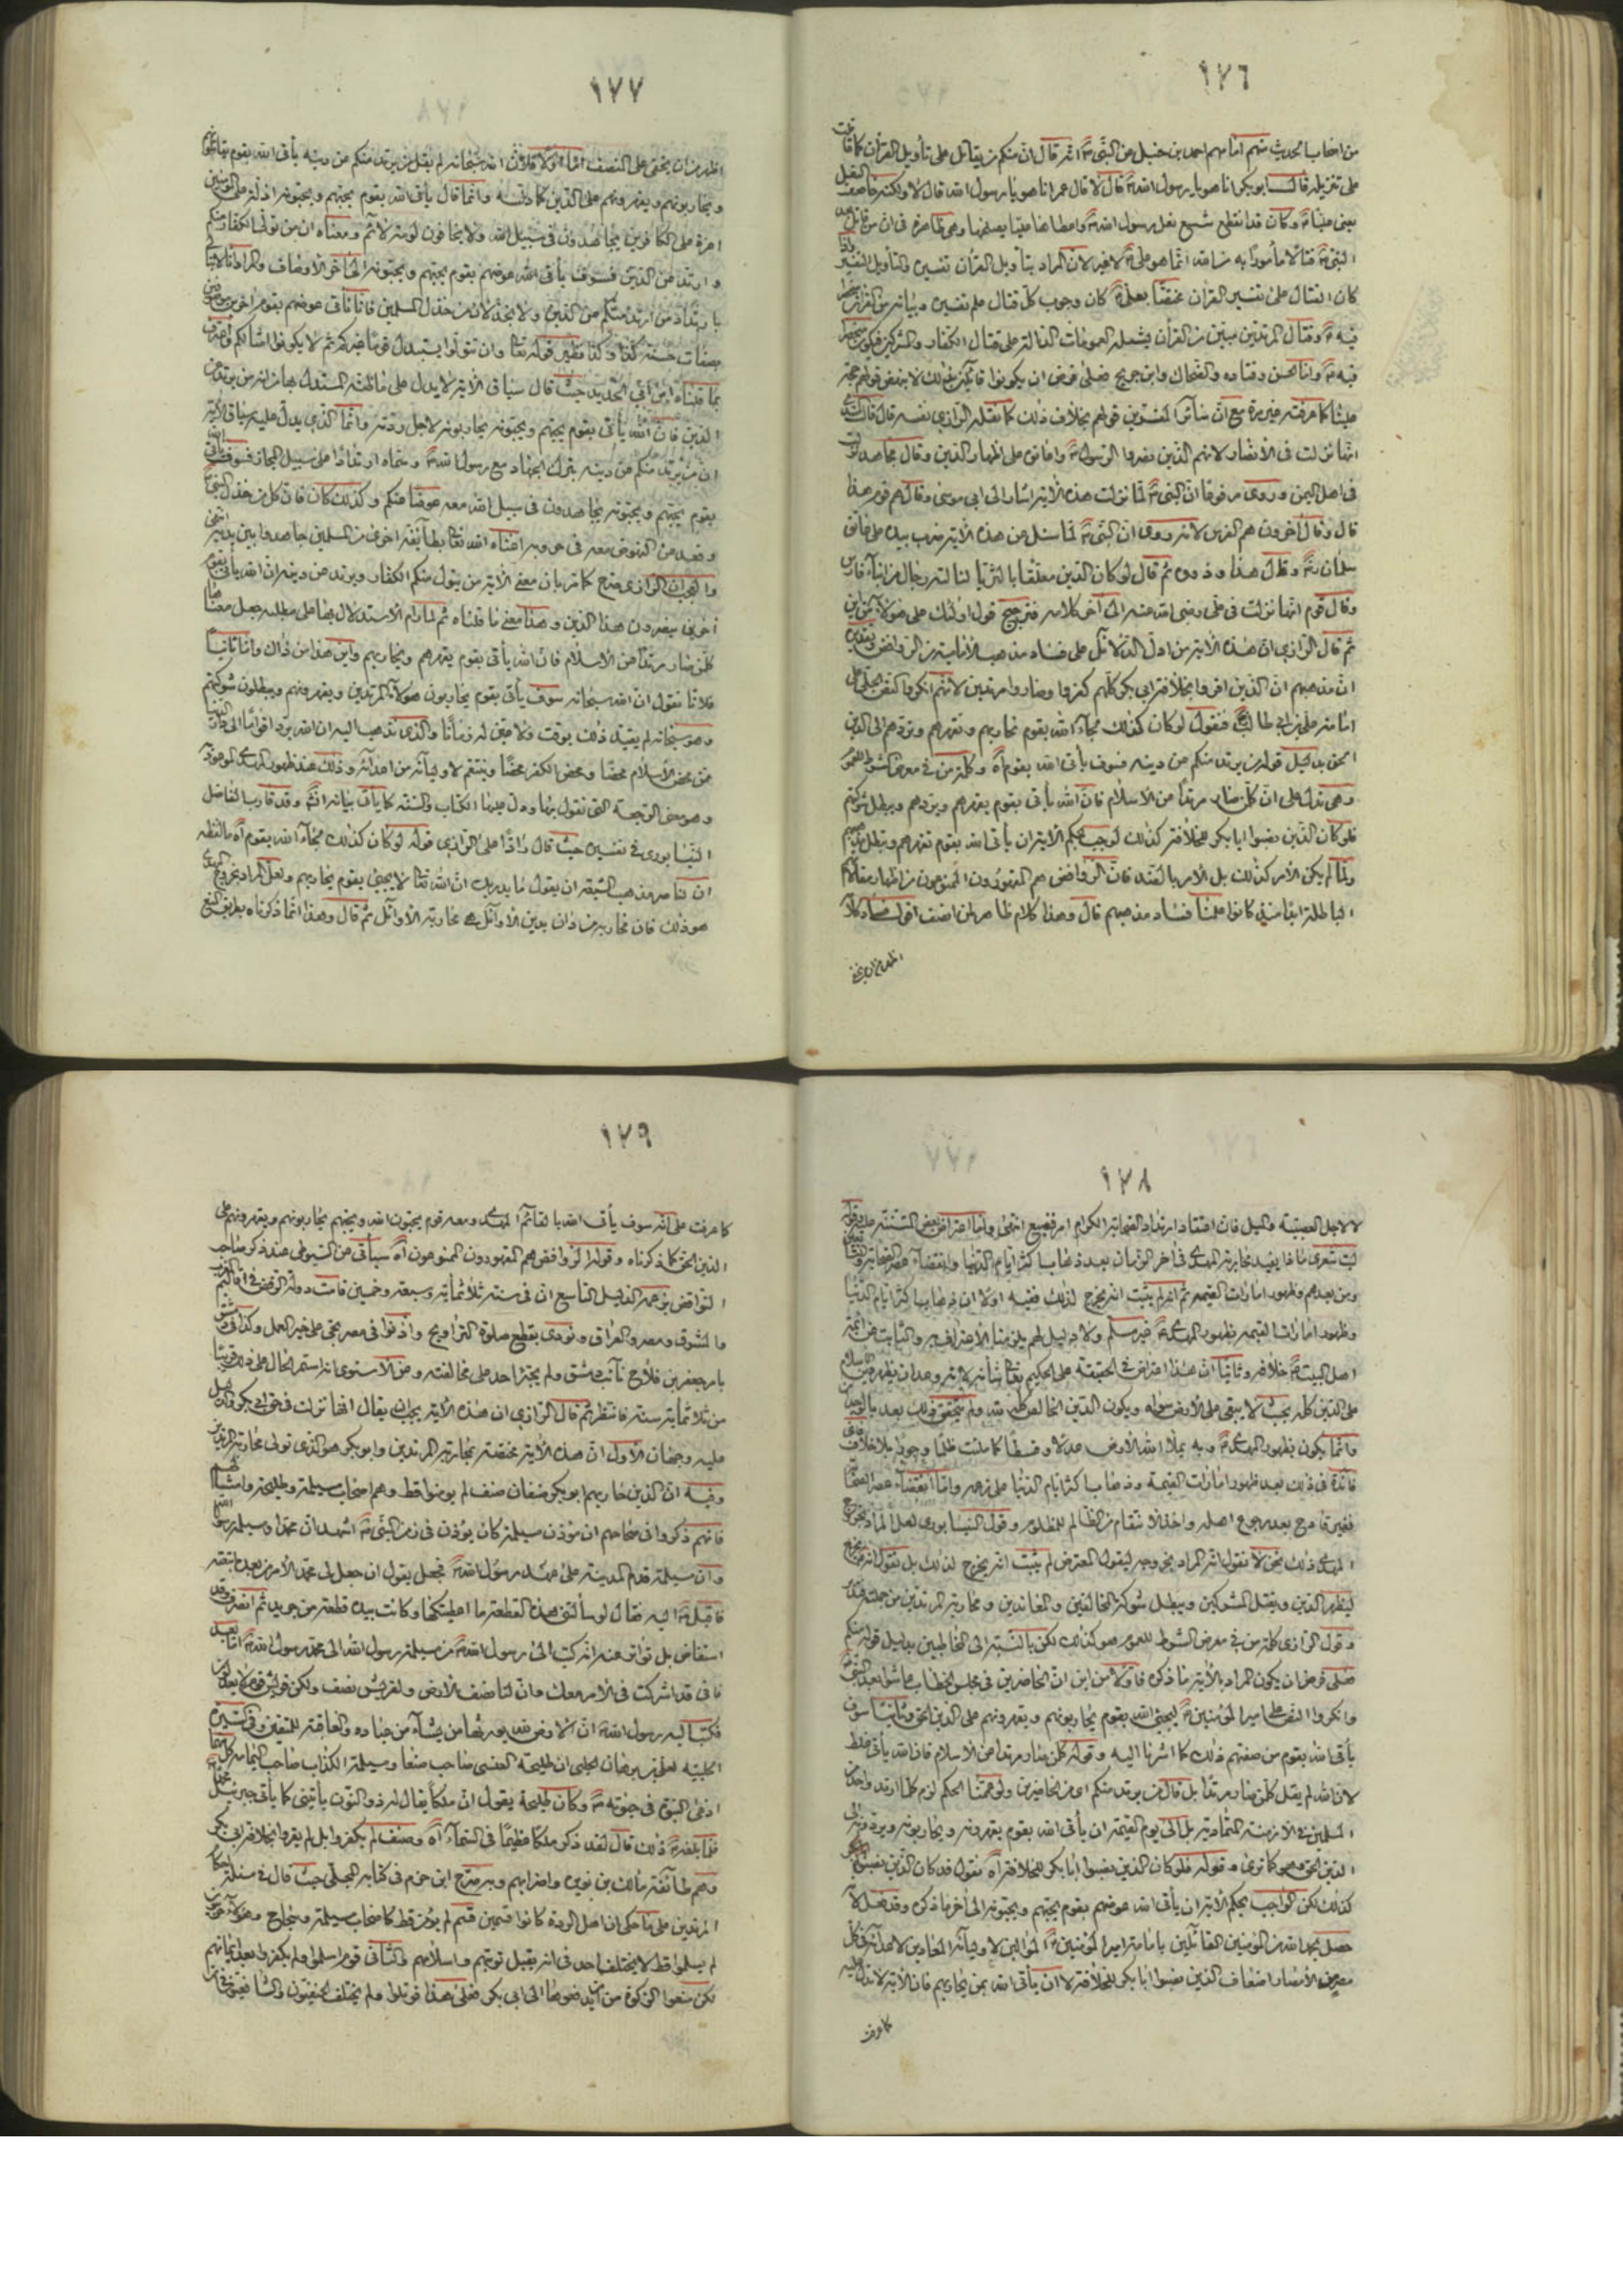 ١٧٦
من اصحاب الحديث منهم امامهم احمد بن حنبل عن النبى انه قال ان منكم من يقاتل على تأويل القرآن كما قاتلت
على تنزيله فقال ابو بكر انا هو يا رسول الله قال لا قال عمر انا هو يا رسول الله قال لا ولكنه خاصف النعل
يعنى عليا وكان قد انقطع شسع نعل رسول الله واعطاها عليا يصلحها وهى ظاهرة فى ان من قاتل بعد
النبى قتالا مأمورا به من الله انما هو على لا غير لان المراد بتأويل القرآن تفسيره والتأويل التفسير
كان القتال على تفسير القرآن مختصا بعلى كان وجوب كل قتال علم تفسيره وبيانه من القرآن
فيه وقتال المرتدين مبين من القرآن يشمله العمومات الدالة على قتال الكفار والمشركين فيكون
فيه واما الحسن وقتاده والضحاك وابن جريج فعلى فرض ان يكونوا قائلين بذلك لا ينهض قولهم حجة
علينا كما عرفته غير مرة مع ان سائر المفسرين قولهم بخلاف ذلك كما نقله الرازى نفسه قال قال السدى
انها نزلت فى الانصار لانهم الذين نصروا الرسول واعانوه على اظهار الدين وقال مجاهد نزلت
فى اهل اليمن وروى مرفوعا ان النبى لما نزلت هذه الآية اشار الى ابى موسى وقال هم قوم هذا
قال وقال آخرون هم الفرس لانه روى ان النبى لما سئل عن هذه الآية ضرب بيده على عاتق
سلمان وقال هذا وذووه ثم قال لو كان الدين معلقا بالثريا لناله رجال من ابناء فارس
وقال قوم انها نزلت فى على رضى الله عنه الى آخر كلامه فترجيح قول اولئك على هؤلاء من اين
ثم قال الرازى ان هذه الآية من ادل الدلائل على فساد مذهب الامامية من الروافض
ان مذهبهم ان الذين اقروا بخلافة ابى بكر كلهم كفروا وصاروا مرتدين لانهم انكروا النص الجلى على
امامة على بن ابى طالب فنقول لو كان كذلك لجاء الله بقوم يحاربهم ويقهرهم ويردهم الى الدين
الحق بدليل قوله من يرتد منكم عن دينه فسوف يأتى الله بقوم آه وكلمة من فى معرض الشرط للعموم
وهى تدل على ان كل من صار مرتدا عن الاسلام فان الله يأتى بقوم يقهرهم ويردهم ويبطل شوكتهم
فلو كان الذين نصبوا ابا بكر للخلافة كذلك لوجب بحكم الآية ان يأتى الله بقوم يقهرهم ويبطل مذهبهم
ولما لم يكن الامر كذلك بل الامر بالضد فان الروافض هم المقهورون الممنوعون من اظهار مقالاتهم
الباطلة ابدا منذ كانوا علمنا فساد مذهبهم قال وهذا كلام ظاهر لمن انصف اقول فساد كلامه
١٧٧
اظهر من ان يخفى على المنصف اما اولا فلأن الله سبحانه لم يقل من يرتد منكم عن دينه يأتى الله بقوم
ويحاربونهم ويقهرونهم على الدين كما ذكره وانما قال يأتى الله بقوم يحبهم ويحبونه اذلة على المؤمنين
اعزة على الكافرين يجاهدون فى سبيل الله ولا يخافون لومة لائم ومعناه ان من تولى الكفار منكم
وارتد عن الدين فسوف يأتى الله عوضهم بقوم يحبهم ويحبونه الى آخر الاوصاف والمراد انا لا نبالى
بارتداد من ارتد منكم عن الدين ولا بخذلان من خذل المسلمين فانا نأتى عوضهم بقوم آخرين موصوفين
بصفات حسنة كذا وكذا نظير قوله تعالى وان تتولوا يستبدل قوما غيركم ثم لا يكونوا امثالكم
بما قلناه ابن ابى الحديد حيث قال سياق الآية لا يدل على ما ظنه المستدل بها من انه من يرتد عن
الدين فان الله يأتى بقوم يحبهم ويحبونه يحاربونه لاجل ردته وانما الذى يدل عليه سياق الآية
ان من يرتد منكم عن دينه بترك الجهاد مع رسول الله وسماه ارتدادا على سبيل المجاز فسوف يأتى الله
بقوم يحبهم ويحبونه يجاهدون فى سبيل الله معه عوضا عنكم وكذلك كان فان كل من خذل النبى
وقعد عن النهوض معه فى حروبه اغناه الله تعالى بطائفة اخرى من المسلمين جاهدوا بين يديه انتهى
والعجب ان الرازى صرح كما مر بان معنى الآية من يتول منكم الكفار ويرتد عن دينه ان الله يأتى بقوم
آخرين ينصرون هذا الدين وهذا معنى ما قلناه ثم لما رام الاستدلال بها على مطلبه جعل معناها
كل من صار مرتدا عن الاسلام فان الله يأتى بقوم يقهرهم ويحاربهم واين هذا من ذاك واما ثانيا
فلانا نقول ان الله سبحانه سوف يأتى بقوم يحاربون هؤلاء المرتدين ويقهرونهم ويبطلون شوكتهم
وهو سبحانه لم يقيد ذلك بوقت ولا عين له زمانا والذى نذهب اليه ان الله يرد اقواما الى دار الدنيا
ممن محض الاسلام محضا ومحض الكفر محضا وينتقم لاوليائه من اعدائه وذلك عند ظهور المهدى الموعود
وهو معنى الرجعة التى نقول بها ودل عليها الكتاب والسنة كما يأتى بيانه ان شاء الله وقد قارب الفاضل
النيسابورى فى تفسيره حيث قال رادا على الرازى قوله لو كان كذلك لجاء الله بقوم آه ما لفظه
ان لناصر مذهب الشيعة ان يقول ما يدريك ان الله تعالى لا يجيئ بقوم يحاربهم ولعل المراد بخروج المهدى
هو ذلك فان محاربة من دان بدين الاوائل هى محاربة الاوائل ثم قال وهذا انما ذكرناه بطريق المنع
١٧٨
لا لاجل العصبية والميل فان اعتقاد ارتداد الصحابة الكرام امر فظيع انتهى واما اعتراض بعض المتسننة عليه بقوله
ليت شعرى ماذا يفيد محاربة المهدى فى آخر الزمان بعد ذهاب اكثر ايام الدنيا وانقضاء عصر الصحابة
ومن بعدهم وظهور امارات القيمه ثم انه لم يثبت انه يخرج لذلك ففيه اولا ان ذهاب اكثر ايام الدنيا
وظهور امارات القيمه بظهور المهدى غير مسلم ولا دليل لهم يلزمنا الاعتراف به والثابت عن ائمة
اهل البيت خلافه وثانيا ان هذا اعتراض فى الحقيقة على الحكيم تعالى شأنه لانه وعد ان يظهر دين الاسلام
على الدين كله بحيث لا يبقى على الارض سواه ويكون الدين الخالص كله لله ولم يتحقق ذلك بعد
وانما يكون بظهور المهدى وبه يملأ الله الارض عدلا وقسطا كما ملئت ظلما وجورا بلا خلاف
فائدة فى ذلك بعد ظهور امارات القيمة وذهاب اكثر ايام الدنيا على زعمه واما انقضاء عصر الصحابة
فغير قادح بعد رجوع اصله واخذ الانتقام من الظالم للمظلوم وقول النيسابورى لعل المراد بخروج
المهدى ذلك نحن لا نقول انه المراد بخروجه ليقول المعترض لم يثبت انه يخرج لذلك بل نقول انه يخرج
ليظهر الدين ويقتل المشركين ويبطل شوكة المخالفين والمعاندين ومحاربة المرتدين من جملة
وقول الرازى كلمة من فى معرض الشرط للعموم هو كذلك لكن بالنسبة الى المخاطبين بدليل قوله منكم
فعلى فرض ان يكون المراد بالآية ما ذكره فاولا من اين ان الحاضرين فى مجلس الخطاب عاشوا بعد النبى
وانكروا النص على امير المؤمنين ليجيئ الله بقوم يحاربونهم ويقهرونهم على الدين الحق وثانيا سوف
يأتى الله بقوم من صفتهم ذلك كما اشرنا اليه وقوله كل من صار مرتدا عن الاسلام فان الله يأتى غلط
لان الله لم يقل كل من صار مرتدا بل قال من يرتد منكم اى من الحاضرين ولو عممنا الحكم لزم كلما ارتد واحد من
المسلمين فى الازمنة المتمادية بل الى يوم القيمة ان يأتى الله بقوم يقهرونه ويحاربونه ويردونه الى
الدين الحق وهو كما ترى وقوله فلو كان الذين نصبوا ابا بكر للخلافة آه نقول قد كان الذين نصبوه
كذلك لكن الواجب بحكم الآية ان يأتى الله عوضهم بقوم يحبهم ويحبونه الى آخر ما ذكره وقد فعل لانه
حصل بحمد الله من المؤمنين القائلين بامامة امير المؤمنين الموالين لاوليائه المعادين لاعدائه فى كل
عصر من الاعصار اضعاف الذين نصبوا ابا بكر للخلافة لا ان يأتى الله بمن يحاربهم فان الآية لا تدل عليه
كما عرفت
١٧٩
كما عرفت على انه سوف يأتى الله بالقائم المهدى ومعه قوم يحبون الله ويحبهم يحاربونهم ويقهرونهم على
الدين الحق كما ذكرناه وقوله الروافض هم المقهورون الممنوعون آه سيأتى عن السيوطى عند ذكر صاحب
النواقض بزعمه الدليل التاسع ان فى سنة ثلاثمائة وسبعة وخمسين قامت دولة الرفض فى اقاليم المغرب
والمشرق ومصر والعراق ونودى بقطع صلوة التراويح واذنوا فى مصر بحى على خير العمل وكذا فى دمشق
بامر جعفر بن فلاح نائب دمشق ولم يجترا احد على مخالفته وعن الاسنوى انه استمر الحال على ذلك قريبا
من ثلاثمائة سنة فانتظر ثم قال الرازى ان هذه الآية يجب ان يقال انها نزلت فى حق ابى بكر والدليل
عليه وجهان الاول ان هذه الآية مختصة بمحاربة المرتدين وابو بكر هو الذى تولى محاربة المرتدين
وفيه ان الذين حاربهم ابو بكر صنفان صنف لم يؤمنوا قط وهم اصحاب مسيلمة وطليحة وامثالهم
فانهم ذكروا فى صحاحهم ان مؤذن مسيلمة كان يؤذن فى زمن النبى اشهد ان محمدا ومسيلمة رسولا الله
وان مسيلمة قدم المدينة على عهد رسول الله فجعل يقول ان جعل لى محمد الامر من بعده اتبعته
فاقبل اليه فقال لو سألتنى هذه القطعة ما اعطيتكها وكانت بيده قطعة من جريد ثم انصرف وقد
استفاض بل تواتر عنه انه كتب الى رسول الله من مسيلمة رسول الله الى محمد رسول الله اما بعد
فانى قد اشركت فى الامر معك وان لنا نصف الارض ولقريش نصف ولكن قريش قوم يعتدون
فكتب اليه رسول الله ان الارض لله يورثها من يشاء من عباده والعاقبة للمتقين وفى السيرة
الحلبية لعلى بن برهان الحلبى ان طليحة العنسى صاحب صنعا ومسيلمة الكذاب صاحب اليمامة كل منهما
ادعى النبوة فى حيوته وكان طليحة يقول ان ملكا يقال له ذو النون يأتينى كما يأتى جبرئيل محمدا
فلما بلغه ذلك قال لقد ذكر ملكا عظيما فى السماء آه وصنف لم يكفروا بل لم يقروا بخلافة ابى بكر
وهم طائفة مالك بن نويره واضرابهم وبه صرح ابن حزم فى كتابه المحلى حيث قال فى مسئلة احكام
المرتدين على ما حكى ان اهل الردة كانوا قسمين قسم لم يؤمن قط كاصحاب مسيلمة وسجاح وهؤلاء
لم يسلموا قط لا يختلف احد فى انه يقبل توبتهم واسلامهم والثانى قوم اسلموا ولم يكفروا بعد ايمانهم
لكن منعوا الزكوة من ان يدفعوها الى ابى بكر فعلى هذا قوتلوا ولم يختلف الحنفيون والشافعيون فى